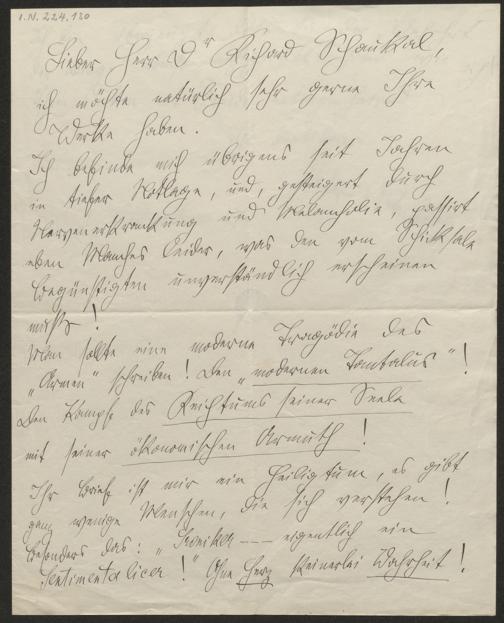 I.N. 224.130
Lieber Herr Dr Richard Schaukal,
ich möchte natürlich sehr gerne Ihre
Werke haben.
Ich befinde mich übrigens seit Jahren
in tiefer Notlage, und, gesteigert durch
Nervenerkrankung und Melancholie, passirt
eben Manches leider, was den vom Schicksale
Begünstigten unverständlich erscheinen
muss!
Man sollte eine moderne Tragödie des
"Armen" schreiben! Den "modernen Tantalus"!
Den Kampf des Reichtums seiner Seele
mit seiner ökonomischen Armuth!
Ihr Brief ist mir ein Heiligtum, es gibt
ganz wenige Menschen, die sich verstehen!
Besonders das: "Ironiker --- eigentlich ein
Sentimentaliker!" Ohne Herz keinerlei Wahrheit!